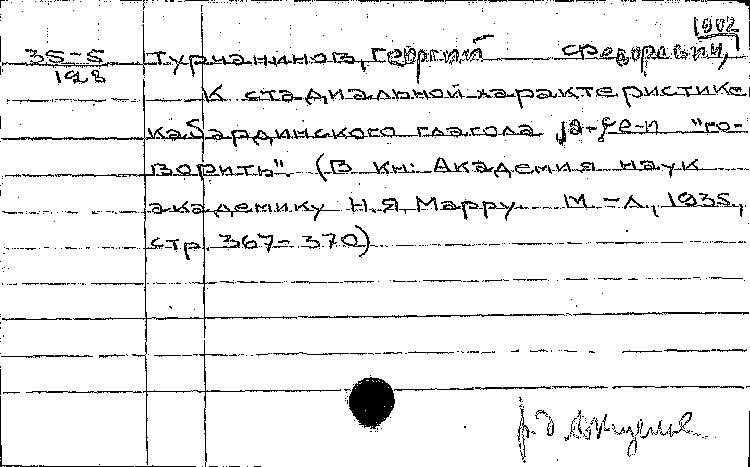 1902
35-5 Турчанинов, Георгий Федорович,
123 К стадиальной характеристике
кабардинского глагола "го-
ворить". (В кн: Академия наук
академику Н.Я. Марру. М.-Л., 1935,
стр. 367-370)